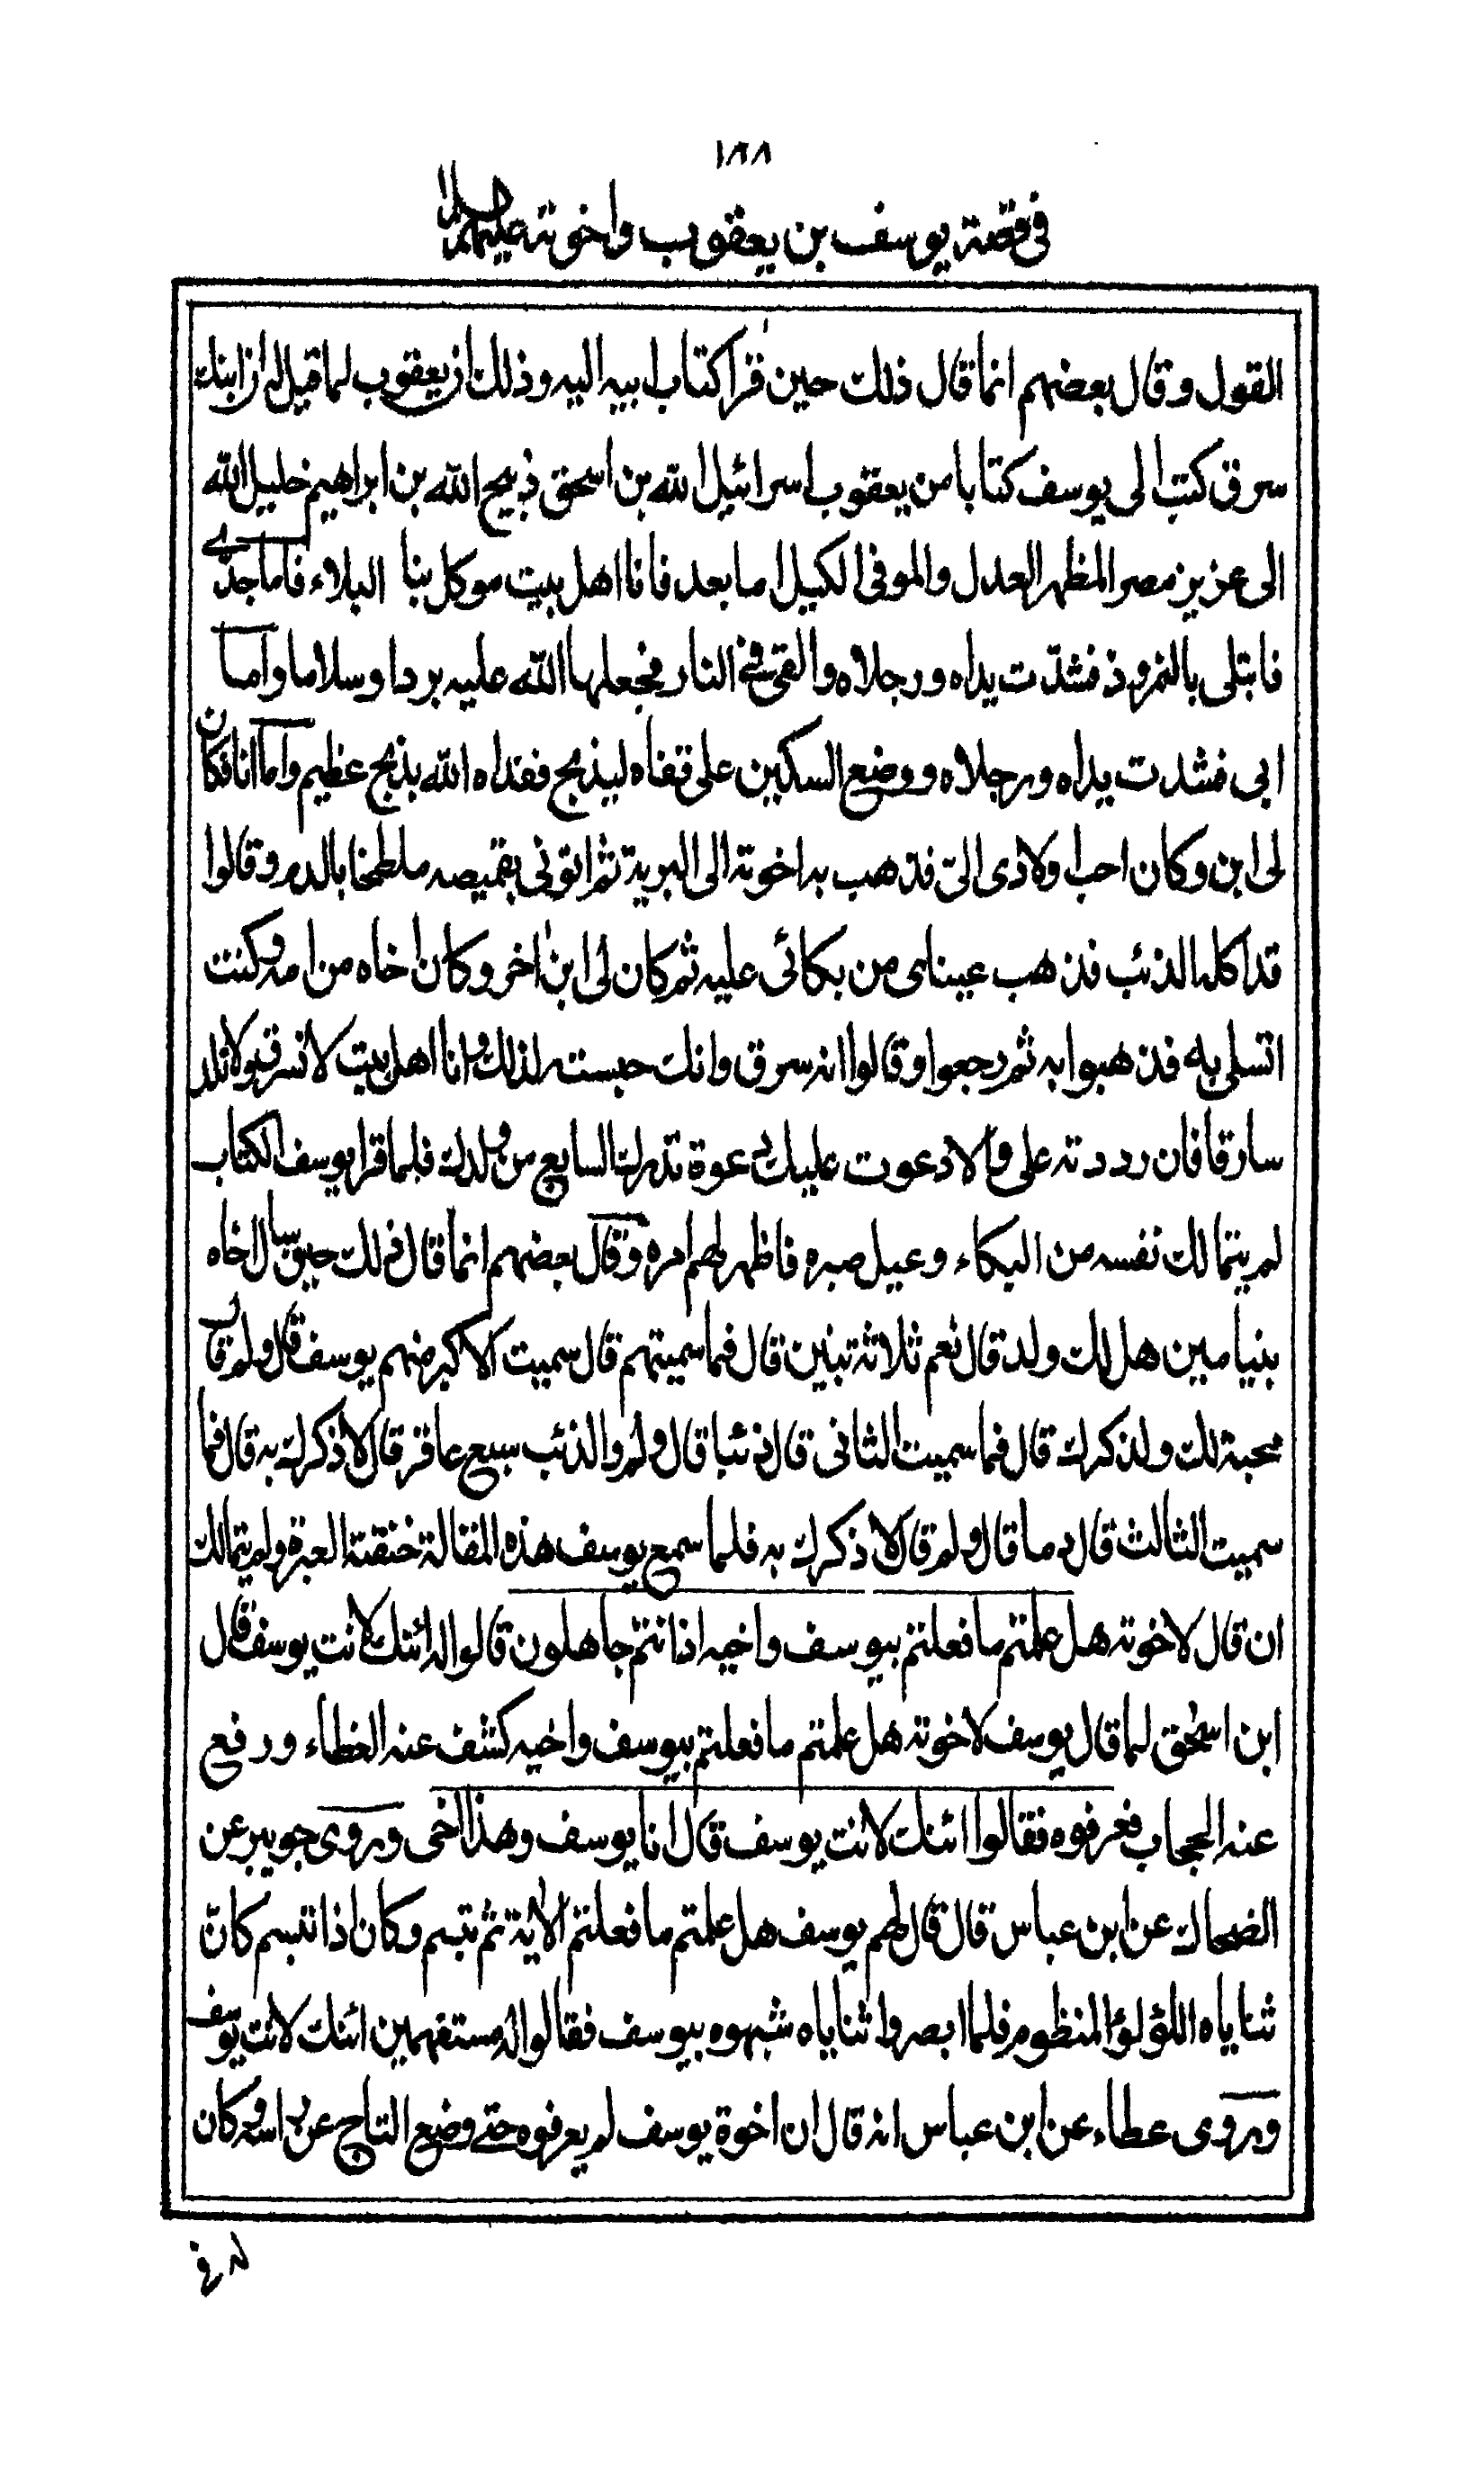 ١٨٨
في قصة يوسف بن يعقوب واخوته عليهم السلام
القول وقال بعضهم انما قال ذلك حين قرا كتاب ابيه اليه وذلك ان يعقوب لما قيل له ان ابنك
سرق كتب الى يوسف كتابا من يعقوب اسرائيل الله بن اسحق ذبيح الله بن ابراهيم خليل الله
الى عزيز مصر المظهر العدل والموفي الكيل اما بعد فانا اهل بيت موكل بنا البلاء فاما جدي
فابتلى بالنمروذ فشدّت يداه ورجلاه والقي في النار فجعلها الله عليه بردا وسلاما واما
ابي فشدت يداه ورجلاه ووضع السكين على قفاه ليذبح ففداه الله بذبح عظيم واما انا فكان
لي ابن وكان احب اولادي اليّ فذهب به اخوته الى البرية ثم اتوني بقميصه ملطخا بالدم وقالوا
قد اكله الذئب فذهب عيناى من بكائي عليه ثم كان لي ابن اخر وكان اخاه من امه وكنت
اتسلى به فذهبوا به ثم رجعوا وقالوا انه سرق وانك حبسته لذلك وانا اهل بيت لا نسرق ولا نلد
سارقا فان رددته علي والا دعوت عليك دعوة تدرك السابع من ولدك فلما قرا يوسف الكتاب
لم يتمالك نفسه من البكاء وعيل صبره فاظهر لهم امره وقال بعضهم انما قال ذلك حين سال اخاه
بنيامين هل لك ولد قال نعم ثلاثة بنين قال فما سميتهم قال سميت الاكبر منهم يوسف قال ولم قال
محبة لك ولذكرك قال فما سميت الثاني قال ذئبا قال ولم والذئب سبع عاقر قال لاذكرك به قال فما
سميت الثالث قال دما قال ولم قال لاذكرك به فلما سمع يوسف هذه المقالة خنقته العبرة ولم يتمالك
ان قال لاخوته هل علمتم ما فعلتم بيوسف واخيه اذ انتم جاهلون قالوا له ائنك لانت يوسف قال
ابن اسحق لما قال يوسف لاخوته هل علمتم ما فعلتم بيوسف واخيه كشف عنه الغطاء ورفع
عنه الحجاب فعرفوه فقالوا ائنك لانت يوسف قال انا يوسف وهذا اخى وروى جويبر عن
الضحاك عن ابن عباس قال قال لهم يوسف هل علمتم ما فعلتم الاية ثم تبسم وكان اذا تبسم كان
ثناياه اللؤلؤ المنظوم فلما ابصروا ثناياه شبهوه بيوسف فقالوا له مستفهمين ائنك لانت يوسف
وروى عطاء عن ابن عباس انه قال ان اخوة يوسف لم يعرفوه حتى وضع التاج عن راسه وكان
له في